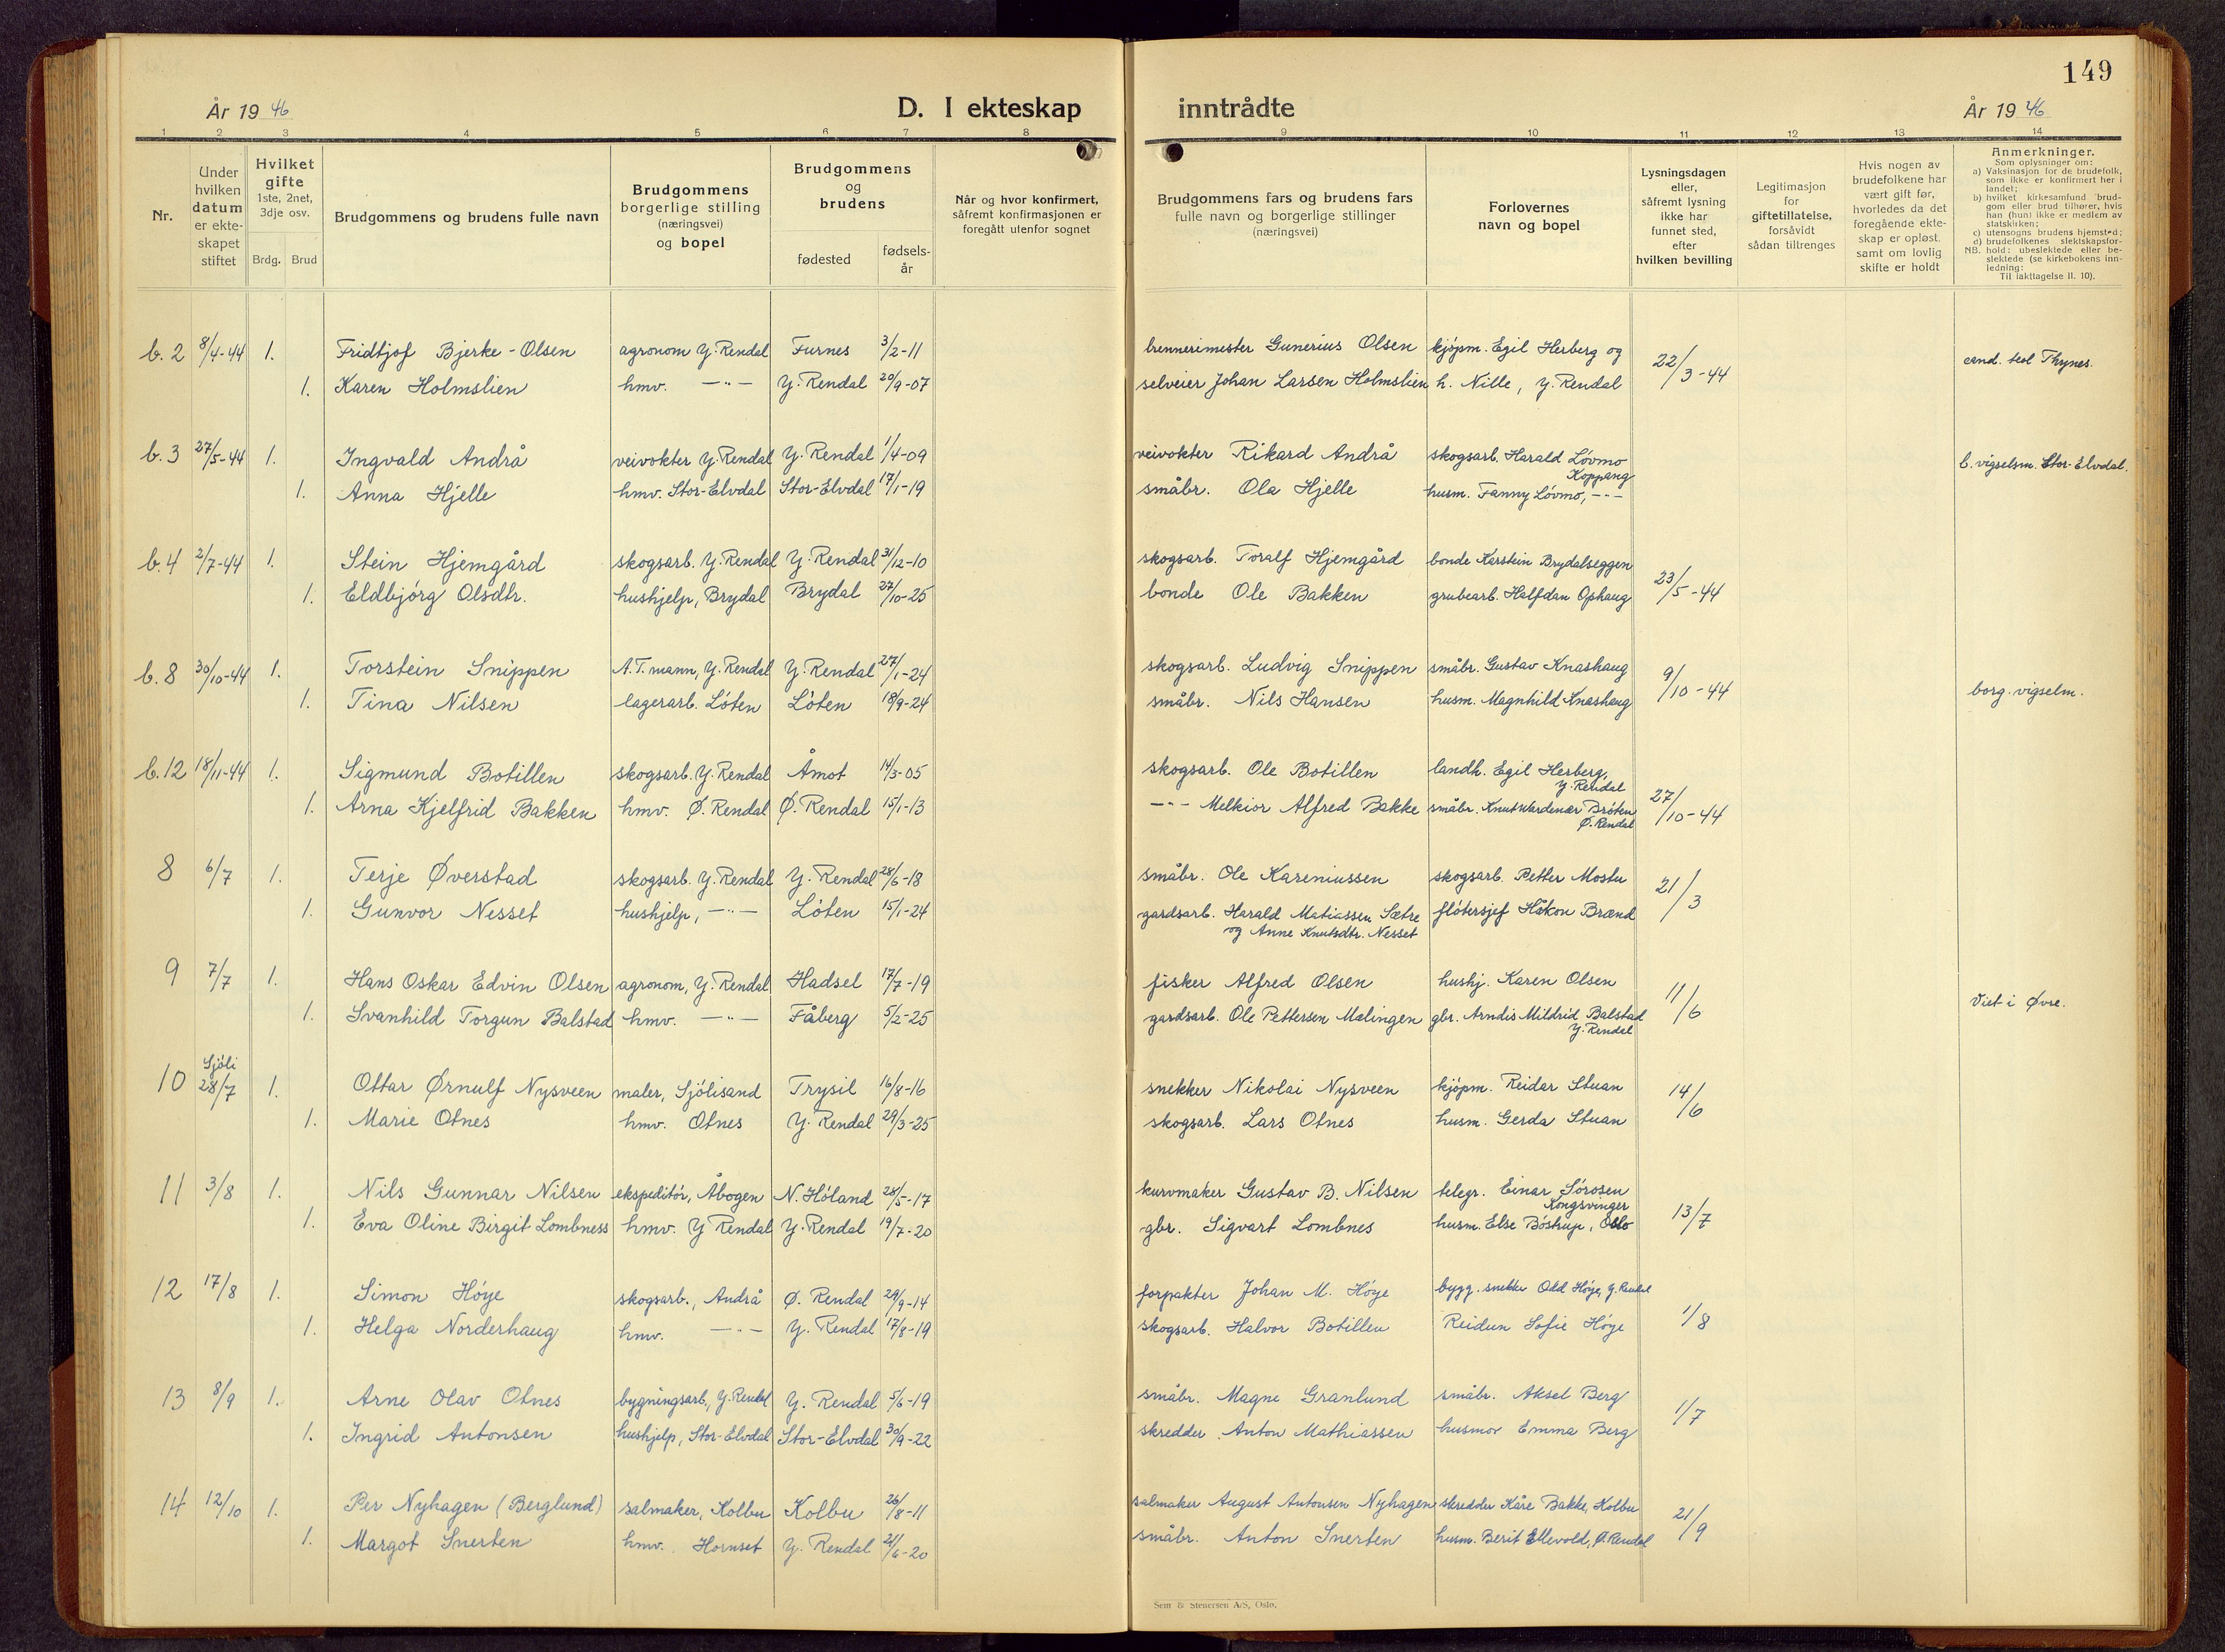 149
År 1946 D. I ekteskap inntrådte År 1946
1 2 3 4 5 6 7 8 9 10 11 12 13 14
Nr.
Under hvilken datum er ekteskapet stiftet
Hvilket gifte 1ste, 2net, 3dje osv.
Brdg. Brud
Brudgommens og brudens fulle navn
Brudgommens borgerlige stilling (næringsvei) og bopel
Brudgommens og brudens
fødested fødsels-år
Når og hvor konfirmert, såfremt konfirmasjonen er foregått utenfor sognet
Brudgommens fars og brudens fars fulle navn og borgerlige stillinger (næringsvei)
Forlovernes navn og bopel
Lysningsdagen eller, såfremt lysning ikke har funnet sted, efter hvilken bevilling
Legitimasjon for giftetillatelse, forsåvidt sådan tiltrenges
Hvis nogen av brudefolkene har vært gift før, hvorledes da det foregående ekteskap er opløst, samt om lovlig skifte er holdt
Anmerkninger.
Som oplysninger om:
a) Vaksinasjon for de brudefolk, som ikke er konfirmert her i landet;
b) hvilket kirkesamfund brudgom eller brud tilhører, hvis han (hun) ikke er medlem av statskirken;
c) utensogns brudens hjemsted;
d) brudefolkenes slektskapsforhold: ubeslektede eller beslektede (se kirkebokens innledning:
NB. Til iakttagelse II. 10).
b. 2 8/4-44 1. Fridtjof Bjerke-Olsen agronom Y. Rendal Furnes 3/2-11 brennerimester Gunerius Olsen kjøpm. Egil Herberg og 22/3-44 cand. teol Thynes.
1. Karen Holmslien hmv. -"- Y. Rendal 20/9-07 selveier Johan Larsen Holmslien h. Nille, Y. Rendal
b. 3 27/5-44 1. Ingvald Andrå veivokter Y. Rendal Y. Rendal 1/4-09 veivokter Rikard Andrå skogsarb. Harald Løvmo Koppang b. vigselsm. Stor-Elvdal.
1. Anna Hjelle hmv. Stor-Elvdal Stor-Elvdal 17/1-19 småbr. Ola Hjelle husm. Fanny Løvmo, -"-
b. 4 2/7-44 1. Stein Hjemgård skogsarb. Y. Rendal Y. Rendal 31/12-10 skogsarb. Toralf Hjemgård bonde Karstein Brydalseggen 23/5-44
1. Eldbjørg Olsdtr. hushjelp, Brydal Brydal 27/10-25 bonde Ole Bakken grubearb. Halfdan Ophaug
b. 8 30/10-44 1. Torstein Snippen A.T. mann, Y. Rendal Y. Rendal 27/1-24 skogsarb. Ludvig Snippen småbr. Gustav Knashaug 9/10-44 borg. vigselm.
1. Tina Nilsen lagerarb. Løten Løten 18/9-24 småbr. Nils Hansen husm. Magnhild Knashaug
b. 12 18/11-44 1. Sigmund Botillen skogsarb. Y. Rendal Åmot 14/3-05 skogsarb. Ole Botillen landh. Egil Herberg, Y. Rendal 27/10-44
1. Arna Kjelfrid Bakken hmv. Ø. Rendal Ø. Rendal 15/1-13 -"- Melkior Alfred Bakke småbr. Knut Wardenær Bråten Ø. Rendal
8 6/7 1. Terje Øverstad skogsarb. Y. Rendal Y. Rendal 28/6-18 småbr. Ole Kareniussen skogsarb. Petter Mostu 21/3
1. Gunvor Nesset hushjelp, -"- Løten 15/1-24 gardsarb. Harald Matiassen Sætre fløtersjef Håkon Brænd
og Anne Knutsdtr. Nesset
9 7/7 1. Hans Oskar Edvin Olsen agronom, Y. Rendal Hadsel 17/7-19 fisker Alfred Olsen hushj. Karen Olsen 11/6 Viet i Øvre.
1. Svanhild Torgun Balstad hmv. -"- Fåberg 5/2-25 gardsarb. Ole Pettersen Mælingen gbr. Arndis Mildrid Balstad Y. Rendal
10 Sjøli 28/7 1. Ottar Ørnulf Nysveen maler, Sjølisand Trysil 16/8-16 snekker Nikolai Nysveen kjøpm. Reidar Stuan 14/6
1. Marie Otnes hmv. Otnes Y. Rendal 29/3-25 skogsarb. Lars Otnes husm. Gerda Stuan
11 3/8 1. Nils Gunnar Nilsen ekspeditør, Åbogen N. Høland 28/5-17 kurvmaker Gustav B. Nilsen telegr. Einar Sørosen Kongsvinger 13/7
1. Eva Oline Birgit Lombness hmv. Y Rendal Y. Rendal 19/7-20 gbr. Sigvart Lombnes husm. Else Bøstrup, Oslo
12 17/8 1. Simon Høye skogsarb., Andrå Ø. Rendal 29/9-14 forpakter Johan M. Høye bygg. snekker Odd Høye, Y. Rendal 1/8
1. Helga Norderhaug hmv. -"- Y. Rendal 17/8-19 skogsarb. Halvor Botillen Reidun Sofie Høye
13 8/9 1. Arne Olav Otnes bygningsarb., Y. Rendal Y. Rendal 5/6-19 småbr. Magne Granlund småbr. Aksel Berg 1/7
1. Ingrid Antonsen hushjelp, Stor-Elvdal Stor-Elvdal 30/9-22 skredder Anton Mathiassen husmor Emma Berg
14 12/10 1. Per Nyhagen (Berglund) salmaker, Kolbu Kolbu 26/8-11 salmaker August Antonsen Nyhagen skredder Kåre Bakke, Kolbu 21/9
1. Margot Snerten hmv. Hornset Y. Rendal 21/6-20 småbr. Anton Snerten husm. Berit Ellevold, Ø. Rendal
Sem & Stenersen A/S, Oslo.